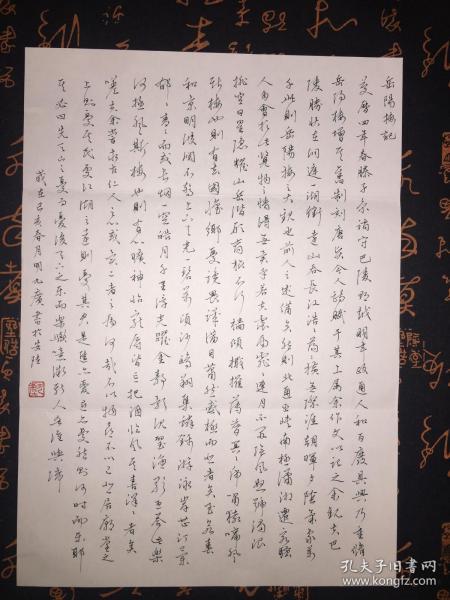 岳陽樓記
慶曆四年春滕子京謫守巴陵郡越明年政通人和百廢具興乃重修
岳陽樓增其舊制刻唐賢今人詩賦于其上屬余作文以記之余觀夫巴
陵勝狀在洞庭一湖銜遠山吞長江浩浩蕩蕩橫無際涯朝暉夕陰氣象萬
千此則岳陽樓之大觀也前人之述備矣然則北通巫峽南極瀟湘遷客騷
人多會於此覽物之情得無異乎若夫霪雨霏霏連月不開陰風怒號濁浪
排空日星隱耀山岳潛形商旅不行檣傾楫摧薄暮冥冥虎嘯猿啼登
斯樓也則有去國懷鄉憂讒畏譏滿目蕭然感極而悲者矣至若春
和景明波瀾不驚上下天光一碧萬頃沙鷗翔集錦鱗游泳岸芷汀蘭
郁郁青青而或長煙一空皓月千里浮光躍金靜影沉璧漁歌互答此樂
何極登斯樓也則有心曠神怡寵辱皆忘把酒臨風其喜洋洋者矣
嗟夫余嘗求古仁人之心或異二者之為何哉不以物喜不以己悲居廟堂之
則憂其民處江湖之遠則憂其君是進亦憂退亦憂然則何時而樂耶
其必曰先天下之憂而憂後天下之樂而樂歟噫微斯人吾誰與歸
歲在己亥春月明九廣書於安陸
孔夫子旧书网